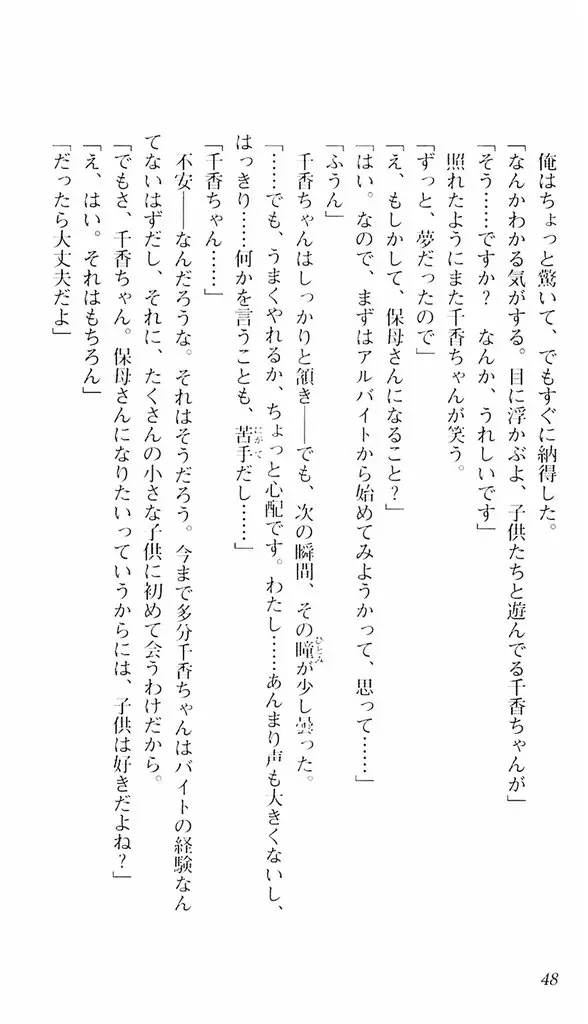 俺はちょっと驚いて、でもすぐに納得した。
「なんかわかる気がする。目に浮かぶよ、子供たちと遊んでる千香ちゃんが」
「そう……ですか？　なんか、うれしいです」
照れたようにまた千香ちゃんが笑う。
「ずっと、夢だったので」
「え、もしかして、保母さんになること？」
「はい。なので、まずはアルバイトから始めてみようかって、思って……」
「ふうん」
千香ちゃんはしっかりと頷き――でも、次の瞬間、その瞳が少し曇った。
ひとみ
「……でも、うまくやれるか、ちょっと心配です。わたし……あんまり声も大きくないし、
はっきり……何かを言うことも、苦手だし……」
にがて
「千香ちゃん……」
不安――なんだろうな。それはそうだろう。今まで多分千香ちゃんはバイトの経験なん
てないはずだし、それに、たくさんの小さな子供に初めて会うわけだから。
「でもさ、千香ちゃん。保母さんになりたいっていうからには、子供は好きだよね？」
「え、はい。それはもちろん」
「だったら大丈夫だよ」
48